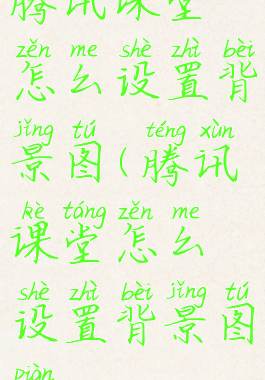 腾讯课堂
zěn me shè zhì bèi
怎么设置背
jǐng tú téng xùn
景图(腾讯
kè táng zěn me
课堂怎么
shè zhì bèi jǐng tú
设置背景图
piàn